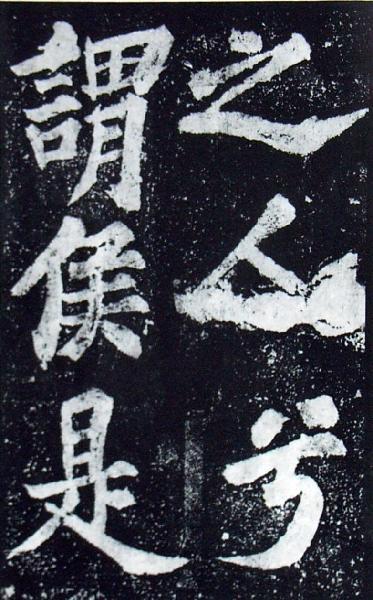 之人兮
謂侯是